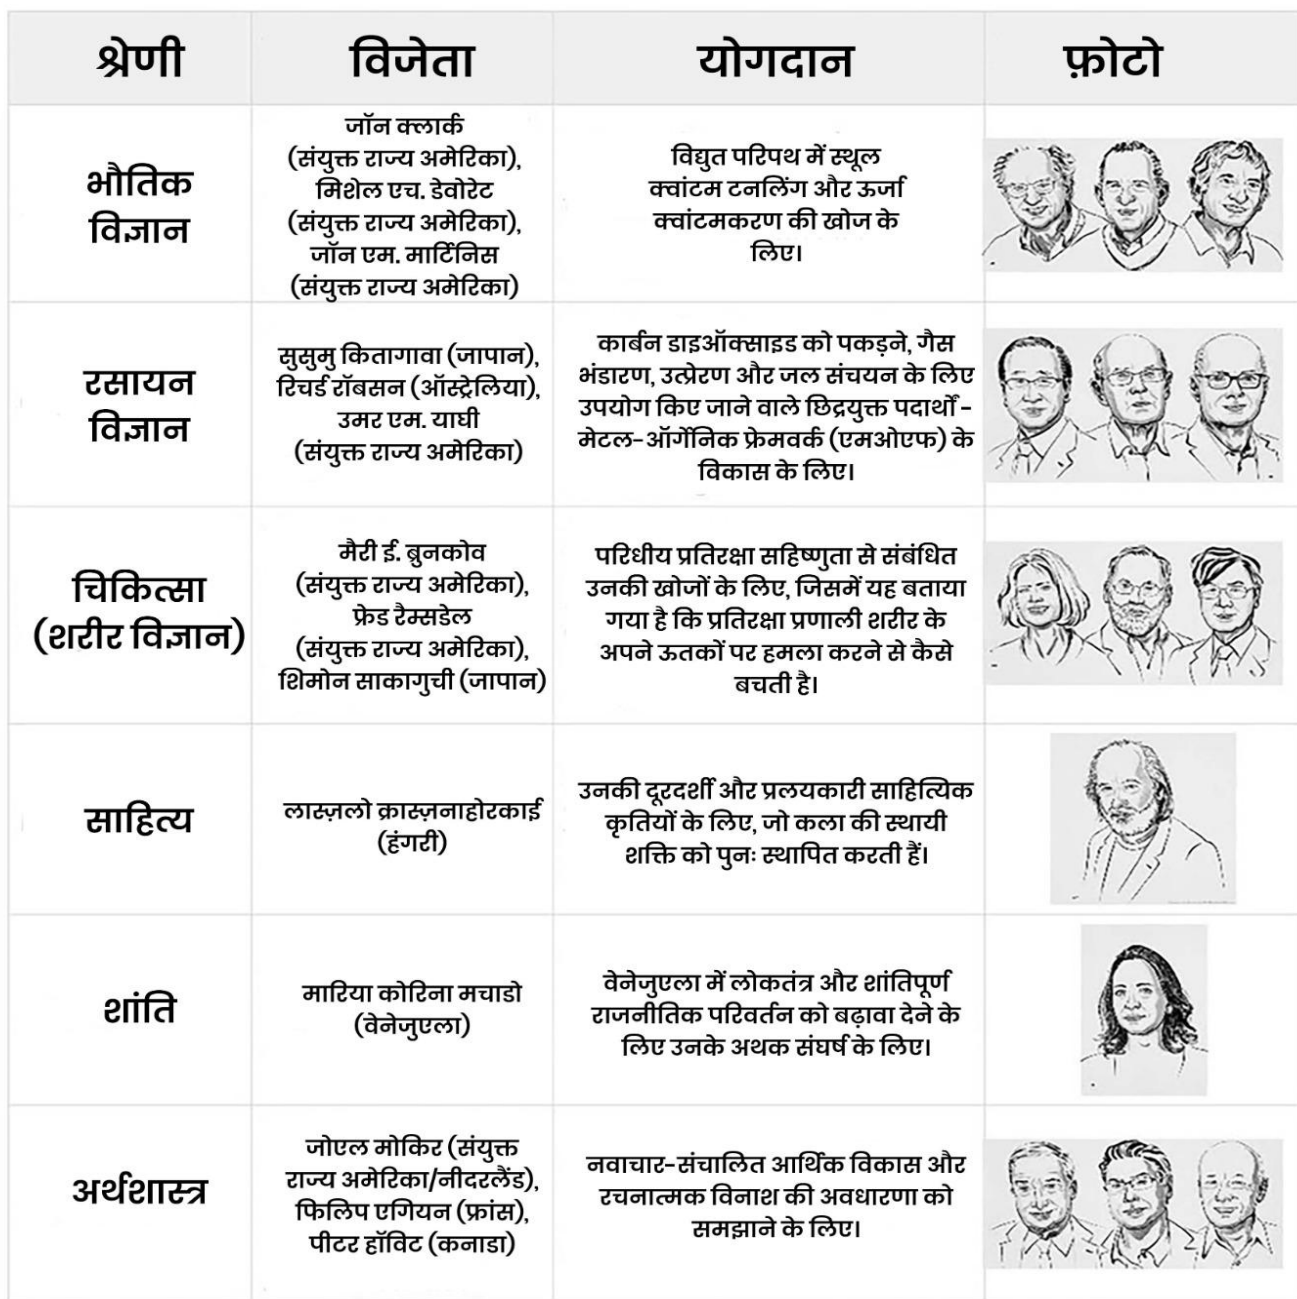 श्रेणी
विजेता
योगदान
फ़ोटो
भौतिक
विज्ञान
जॉन क्लार्क
(संयुक्त राज्य अमेरिका),
मिशेल एच. डेवोरेट
(संयुक्त राज्य अमेरिका),
जॉन एम. मार्टिनिस
(संयुक्त राज्य अमेरिका)
विद्युत परिपथ में स्थूल
क्वांटम टनलिंग और ऊर्जा
क्वांटमकरण की खोज के
लिए।
रसायन
विज्ञान
सुसुमु कितागावा (जापान),
रिचर्ड रॉबसन (ऑस्ट्रेलिया),
उमर एम. याघी
(संयुक्त राज्य अमेरिका)
कार्बन डाइऑक्साइड को पकड़ने, गैस
भंडारण, उत्प्रेरण और जल संचयन के लिए
उपयोग किए जाने वाले छिद्रयुक्त पदार्थों -
मेटल-ऑर्गेनिक फ्रेमवर्क (एमओएफ) के
विकास के लिए।
चिकित्सा
(शरीर विज्ञान)
मैरी ई. ब्रुनकोव
(संयुक्त राज्य अमेरिका),
फ्रेड रैम्सडेल
(संयुक्त राज्य अमेरिका),
शिमोन साकागुची (जापान)
परिधीय प्रतिरक्षा सहिष्णुता से संबंधित
उनकी खोजों के लिए, जिसमें यह बताया
गया है कि प्रतिरक्षा प्रणाली शरीर के
अपने ऊतकों पर हमला करने से कैसे
बचती है।
साहित्य
लास्ज़लो क्रास्ज़नाहोरकाई
(हंगरी)
उनकी दूरदर्शी और प्रलयकारी साहित्यिक
कृतियों के लिए, जो कला की स्थायी
शक्ति को पुनः स्थापित करती हैं।
शांति
मारिया कोरिना मचाडो
(वेनेजुएला)
वेनेजुएला में लोकतंत्र और शांतिपूर्ण
राजनीतिक परिवर्तन को बढ़ावा देने के
लिए उनके अथक संघर्ष के लिए।
अर्थशास्त्र
जोएल मोकिर (संयुक्त
राज्य अमेरिका/नीदरलैंड),
फिलिप एगियन (फ्रांस),
पीटर हॉविट (कनाडा)
नवाचार-संचालित आर्थिक विकास और
रचनात्मक विनाश की अवधारणा को
समझाने के लिए।